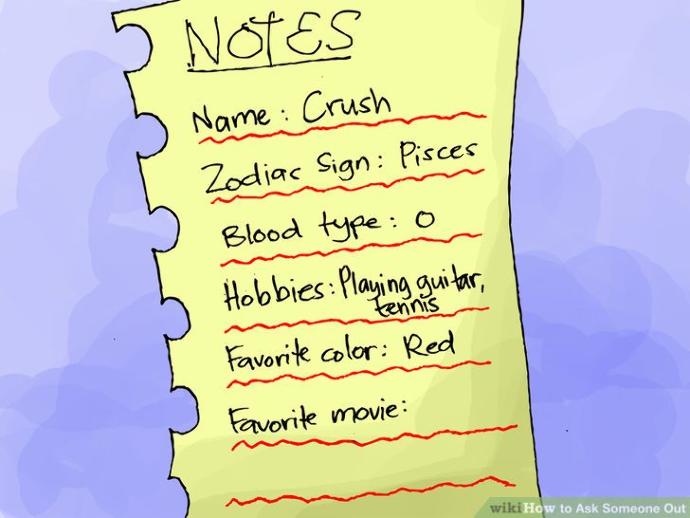 NOTES
Name: Crush
Zodiac Sign: Pisces
Blood type: O
Hobbies: Playing guitar,
tennis
Favorite color: Red
Favorite movie:
wikiHow to Ask Someone Out